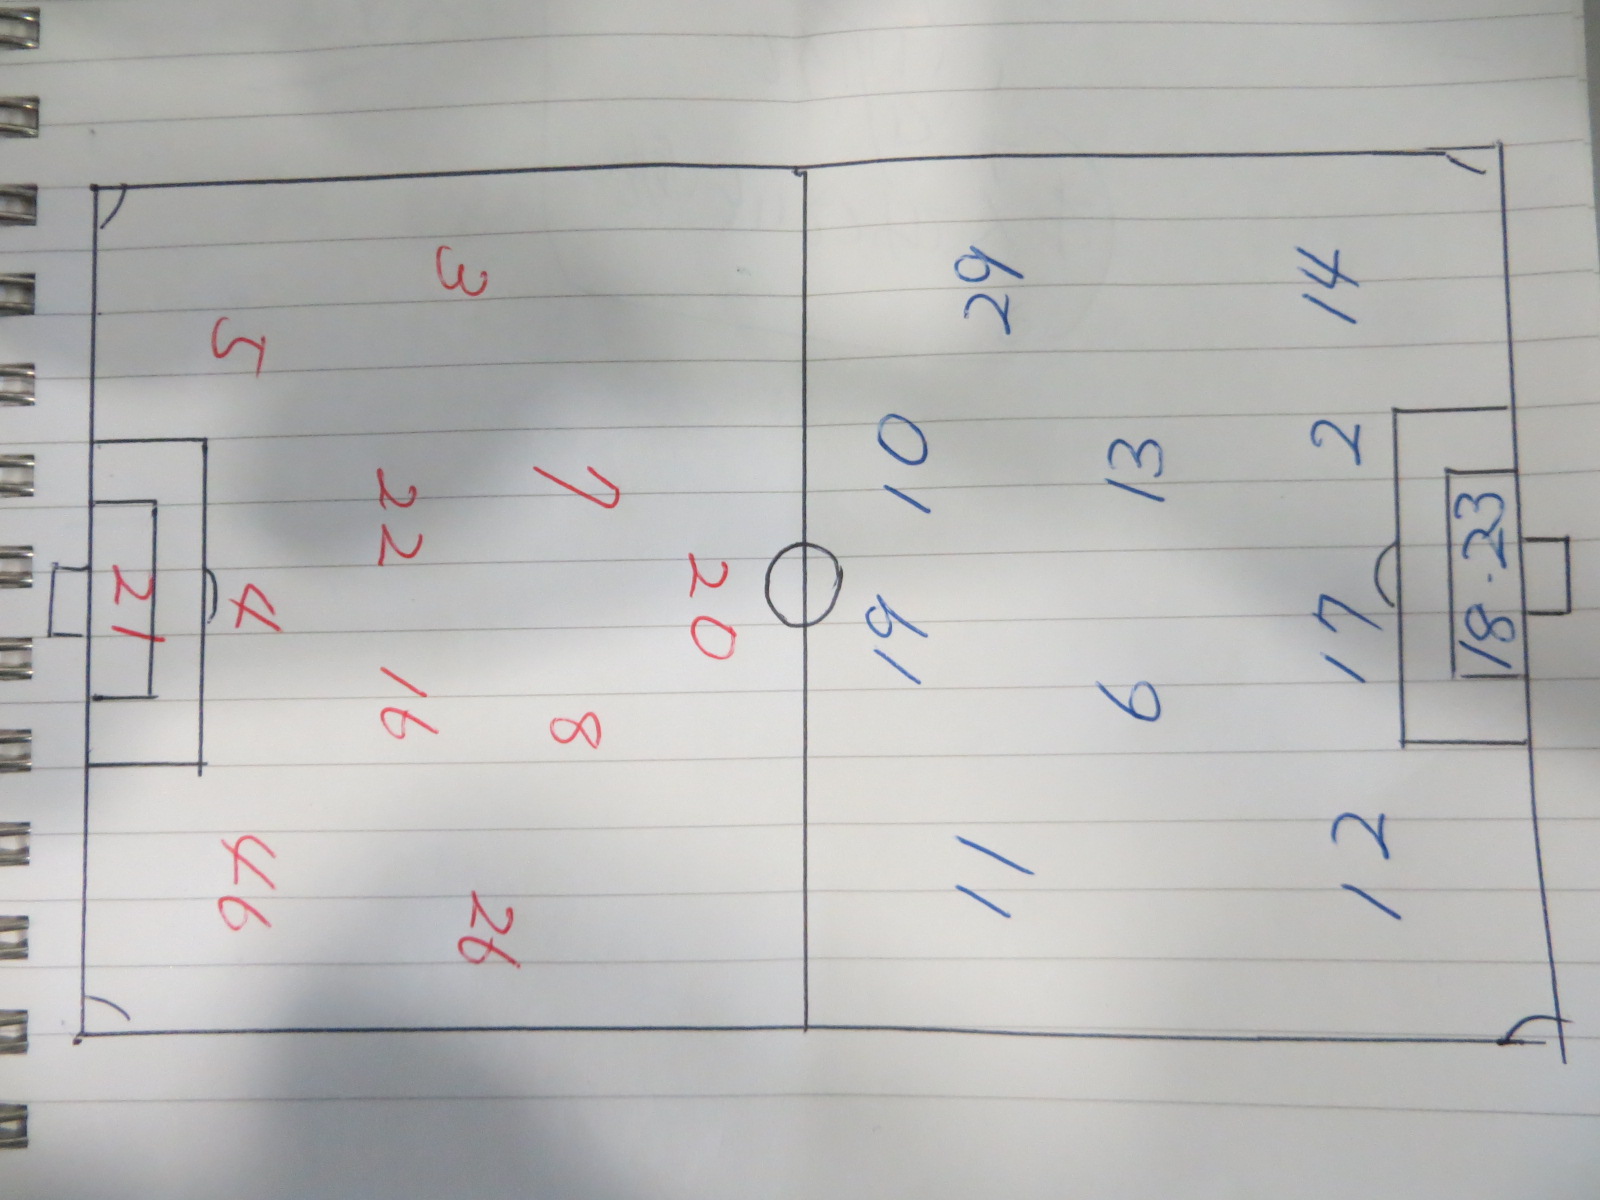 3
5
7
22
20
4
21
16
8
46
26
29
14
10
13
2
18・23
19
6
17
11
12